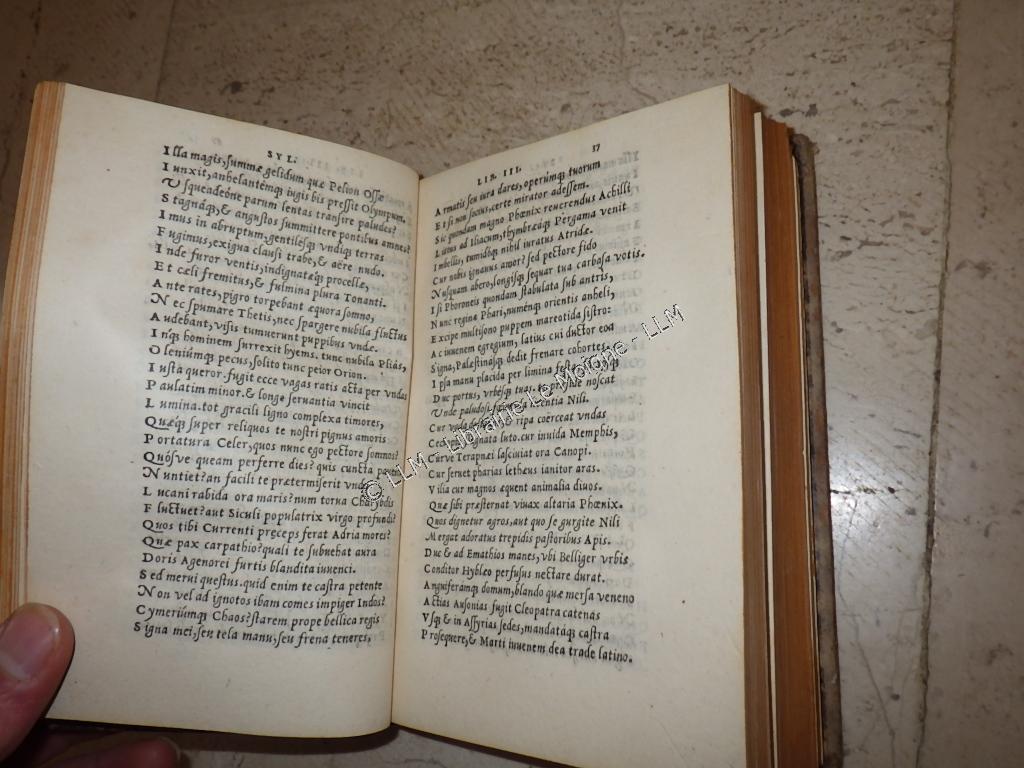 SYL.
Illa magis, summæ gelidum quæ Pelion Ossæ
Iunxit, anhelantemq; iugis bis pressit Olympum.
Vsqueadeóne parum lentas transire paludes?
Stagnaq;, & angustos summittere pontibus amnes?
Imus in abruptum, gentilesq; vndiq; terras
Fugimus, exigua clausi trabe, & aëre nudo.
Inde furor ventis, indignatæq; procellæ,
Et cœli fremitus, & fulmina plura Tonanti.
Ante rates, pigro torpebant æquora somno,
Nec spumare Thetis, nec spargere nubila fluctus
Audebant, visis tumuerunt puppibus vndæ.
Inq; hominem surrexit hyems. tunc nubila Plias,
Oleniumq; pecus, solito tunc peior Orion.
Iusta queror. fugit ecce vagas ratis acta per vndas
Paulatim minor, & longe seruantia vincit
Lumina. tot gracili ligno complexa timores,
Quæq; super reliquos te nostri pignus amoris
Portatura Celer, quos nunc ego pectore somnos?
Quósve queam perferre dies? quis cuncta
Nuntiet? an facili te prætermiserit vnda
Lucani rabida ora maris? num torua Charybdis
Fluctuet? aut Siculi populatrix virgo profundi?
Quos tibi Currenti præceps ferat Adria mores?
Quæ pax carpathio? quali te subuehat aura
Doris Agenorei furtis blandita iuuenci.
Sed merui questus. quid enim te castra petente
Non vel ad ignotos ibam comes impiger Indos?
Cymeriúmq; Chaos? starem prope bellica regis
Signa mei, seu tela manu, seu frena teneres,
LIB. III. 37
Armatis seu iura dares, operúmq; tuorum
Et si non socius, certe mirator adessem.
Sic quondam magno Phœnix reuerendus Achilli
Littus ad Iliacum, thymbræaq; Pergama venit
Imbellis, tumidóq; nihil iuratus Atridæ.
Cur nobis ignauus amor? sed pectore fido
Nusquam abero, longisq; sequar tua carbasa votis.
Isi Phoroneis quondam stabulata sub antris,
Nunc regina Phari, numenq; orientis anheli,
Excipe multisono puppem mareotida sistro:
Ac iuuenem egregium, latius cui ductor eoa
Signa, Palæstinasq; dedit frenare cohortes,
Ipsa manu placida per limina
Duc portus, vrbesq; tuas. noscat
Vnde paludosi licentia Nili.
Cur ripa coërceat vndas
luto. cur inuida Memphis,
Curve Terapnæi lasciuiat ora Canopi.
Cur seruet pharias letheus ianitor aras.
Vilia cur magnos æquent animalia diuos.
Quæ sibi præsternat viuax altaria Phœnix.
Quos dignetur agros, aut quo se gurgite Nili
Mergat adoratus trepidis pastoribus Apis.
Duc & ad Emathios manes, vbi Belliger vrbis
Conditor Hyblæo perfusus nectare durat.
Anguiferámq; domum, blando quæ mersa veneno
Actias Ausonias fugit Cleopatra catenas
Vsq; & in Assyrias sedes, mandatáq; castra
Prosequere, & Marti iuuenem dea trade latino.
© LLM - Librairie Le Moighe - LLM